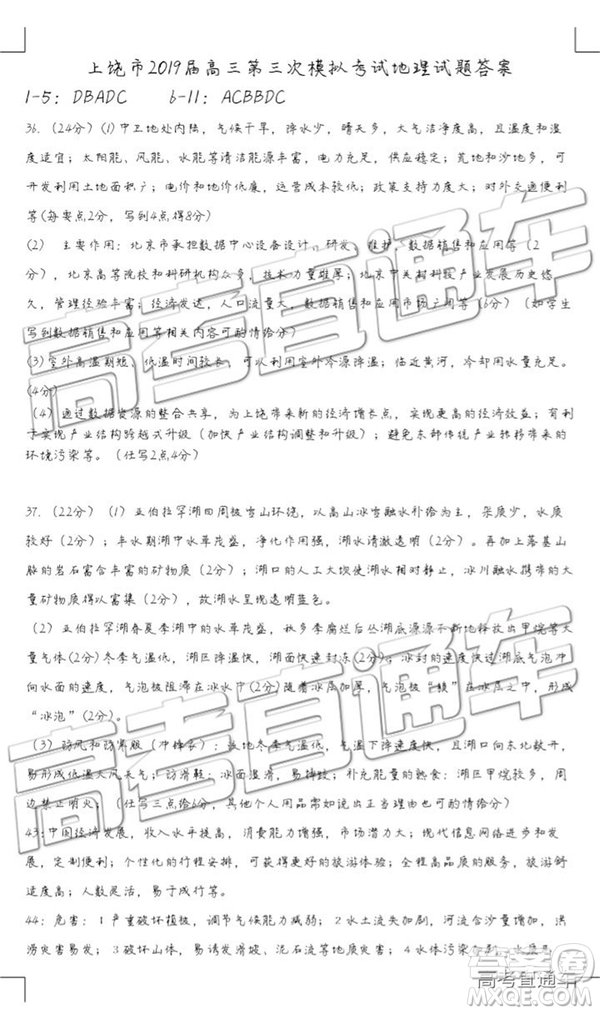 上饶市2019届高三第三次模拟考试地理试题答案
1-5：DBADC 6-11：ACBBDC
36.（24分）(1)中卫地处内陆，气候干旱，降水少，晴天多，大气洁净度高，且温度和湿
度适宜；太阳能、风能、水能等清洁能源丰富，电力充足，供应稳定；荒地和沙地多，可
开发利用土地面积广；电价和地价低廉，运营成本较低；政策支持力度大；对外交通便利
等(每要点2分，写到4点得8分)
(2) 主要作用：北京市承担数据中心设备设计、研发、维护，数据销售和应用等（2
分），北京高等院校和科研机构众多，技术力量雄厚；北京中关村科技产业发展历史悠
久，管理经验丰富；经济发达，人口流量大，数据销售和应用市场广阔等（6分）（如学生
写到数据销售和应用等相关内容可酌情给分）
(3)室外高温期短、低温时间较长，可以利用室外冷源降温；临近黄河，冷却用水量充足。
（4分）
（4）通过数据资源的整合共享，为上饶带来新的经济增长点，实现更高的经济效益；有利
于实现产业结构跨越式升级（加快产业结构调整和升级）；避免东部传统产业转移带来的
环境污染等。（任写2点4分）
37.（22分）（1）亚伯拉罕湖四周被雪山环绕，以高山冰雪融水补给为主，杂质少，水质
较好（2分）；丰水期湖中水草茂盛，净化作用强，湖水清澈透明（2分）。再加上落基山
脉的岩石富含丰富的矿物质（2分）；湖口的人工大坝使湖水相对静止，冰川融水携带的大
量矿物质得以富集（2分），故湖水呈现透明蓝色。
（2）亚伯拉罕湖春夏季湖中的水草茂盛，秋冬季腐烂后从湖底源源不断地释放出甲烷等大
量气体(2分)冬季气温低，湖区降温快，湖面快速封冻(2分)；冰封的速度快过湖底气泡冲
向水面的速度，气泡被阻滞在冰水下(2分)随着冰层加厚，气泡被“锁”在冰层之中，形成
“冰泡”(2分)。
（3）防风和防寒服（冲锋衣）：该地冬季气温低，气温下降速度快，且湖口向东北敞开，
易形成低温大风天气；防滑鞋：冰面湿滑，易摔跤；补充能量的熟食：湖区甲烷较多，周
边禁止明火；（任写三点给6分，其他个人用品需如说出正当理由也可酌情给分）
43:中国经济发展，收入水平提高，消费能力增强，市场潜力大；现代信息网络进步和发
展，定制便利；个性化的行程安排，可获得更好的旅游体验；全程高品质的服务，旅游舒
适度高；人数灵活，易于成行等。
44：危害：1严重破坏植被，调节气候能力减弱；2水土流失加剧，河流含沙量增加，洪
涝灾害易发；3破坏山体，易诱发滑坡、泥石流等地质灾害；4水体污染加剧，水质
高考直通车
高考直通车
高考直通车
答案圈
MXQE.COM